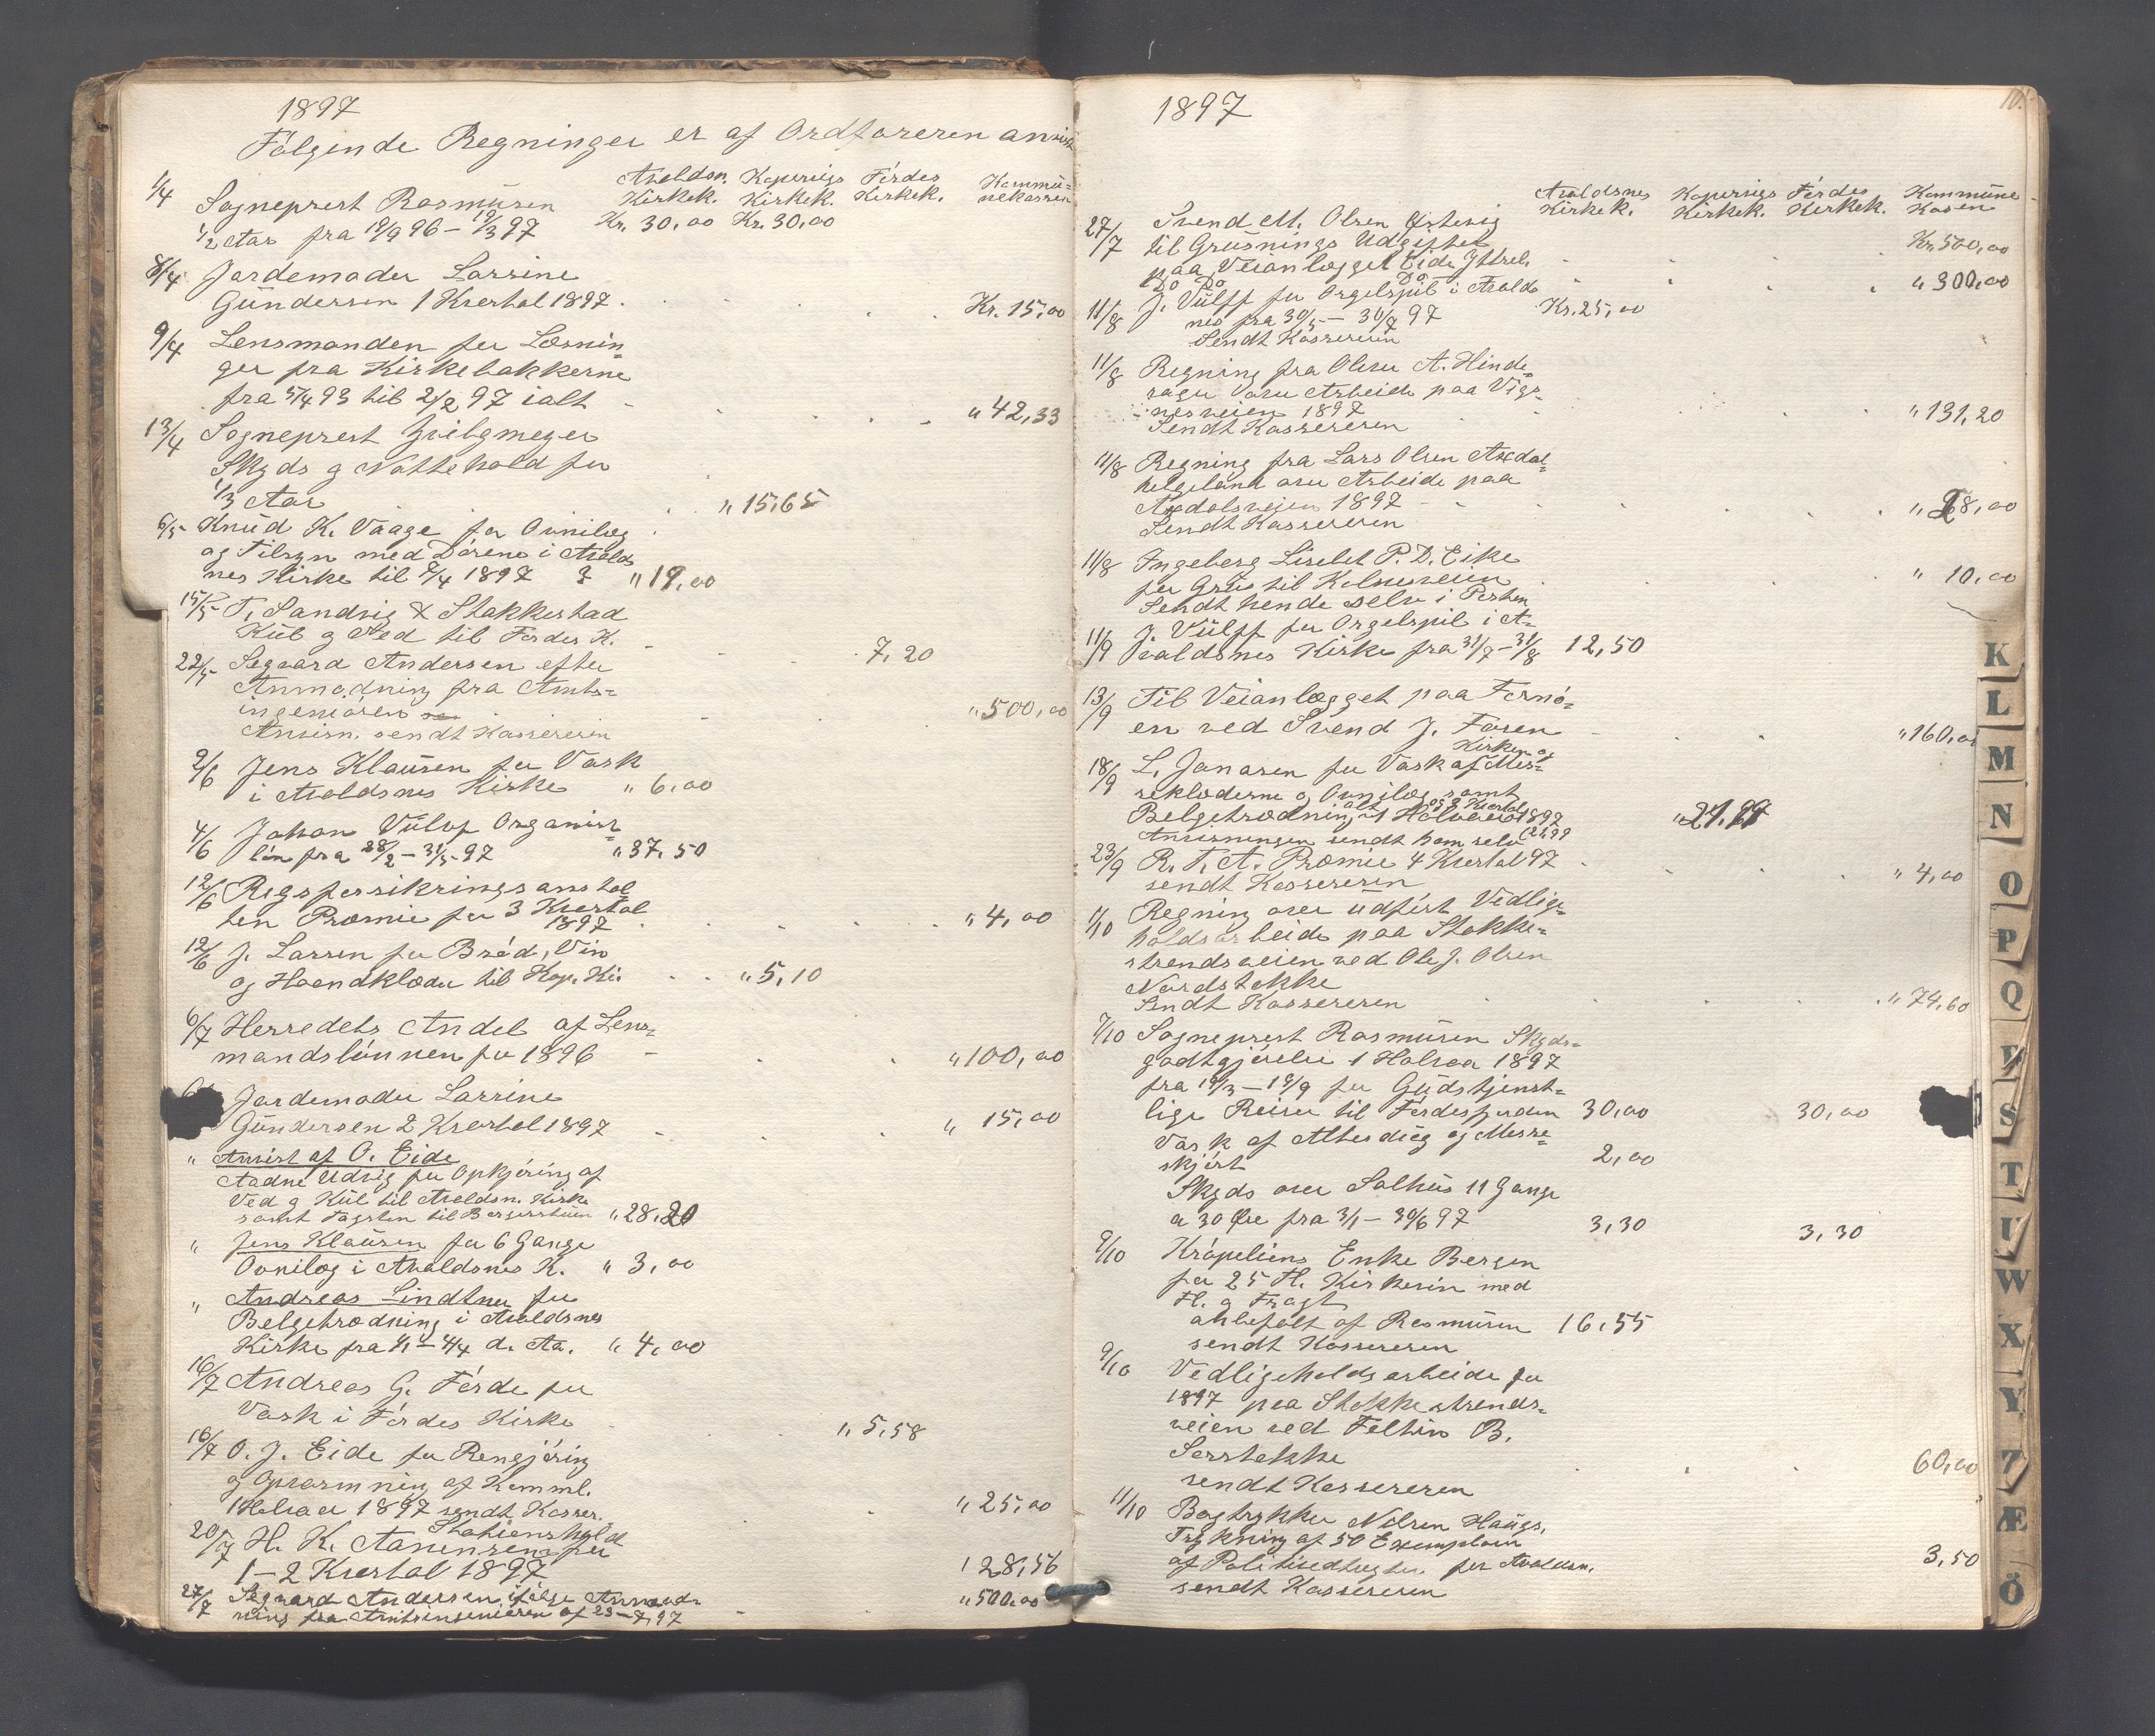 1897
Følgende Regninger er af Ordføreren anvist
Avaldsn. Kopervigs Førdes Kommu=
Kirkek. Kirkek. Kirkek. nekassen
1/4 Sogneprest Rasmusen
1/2 Aar fra 19/9 96 – 19/3 97 Kr. 30,00 Kr. 30,00
8/4 Jordemoder Larsine
Gundersen 1 Kvertal 1897. Kr. 15,00
9/4 Lensmanden for Læsnin=
ger fra Kirkebakkerne
fra 5/4 93 til 2/2 97 ialt " 42,33
13/4 Sogneprest
Skyds og Nattehold for
1/3 Aar " 15,65
6/5 Knud K. Vaage for Ovnilæg
og Tilsyn med Dørene i Avalds
nes Kirke til 2/4 1897 " 19,00
15/5 T. Sandvig & Stakkestad
Kul og Ved til Førdes K. 7,20
22/5 Segvard Andersen efter
Anmodning fra Amts=
ingeniøren " 500,00
Anvisn. sendt Kassereren
2/6 Jens Klausen for Vask
i Avaldsnes Kirke " 6,00
4/6 Johan Vülff Organist
løn fra 28/2 – 31/5 97 " 37,50
12/6 Rigsforsikringsanstal
ten Præmie for 3 Kvertal
1897 " 4,00
12/6 J. Larsen for Brød, Vin
og Haandklæder til Kop. Ki. " 5,10
6/7 Herredets Andel af Lens=
mandslønnen for 1896 " 100,00
Jordemoder Larsine
Gundersen 2 Kvertal 1897 " 15,00
" Anvist af O. Eide
Aadne Udvig for Opkjøring af
Ved og Kul til Avaldsn. Kirke
samt Tagsten til Borgerstuen " 28,20
" Jens Klausen for 6 Gange
Ovnilæg i Avaldsnes K. " 3,00
" Andreas Lindtner for
Belgetrædning i Avaldsnes
Kirke fra 1/1 – 4/4 d. Aa. " 4,00
16/7 Andreas G. Førde for
Vask i Førdes Kirke " 5,58
16/7 O. J. Eide for Rengjøring
og Opvarmning af Komml.
1 Halvaar 1897 sendt Kasser. " 25,00
Stationshold
20/7 H. K. Aanensen for
1 – 2 Kvertal 1897 128,56
27/7 Segvard Andersen ifølge Anmod=
ning fra Amtsingeniøren af 23–7, 97 " 500,00
1897
Avaldsnes Kopervigs Førdes Kommune
Kirkek. Kirkek. Kirkek. Kasen
27/7 Svend M. Olsen Østevig
til Grusnings Udgifter Kr. 500,00
paa Veianlægget Eide Yttrel.
Do Do Do " 300,00
11/8 J. Vülff for Orgelspil i Avalds
nes fra 30/5 – 30/7 97 Kr. 25,00
Sendt Kassereren
11/8 Regning fra Olene A. Hinde=
over Arbeide paa Vigs=
nesveien 1897 " 131,20
Sendt Kassereren
11/8 Regning fra Lars Olsen Axdal=
helgeland over Arbeide paa
Axdalsveien 1897 8,00
Sendt Kassereren
11/8 Ingeborg Liselet P. D. Eike
for Grus til Kolnesveien " 10,00
Sendt hende selv i Posten
11/9 J. Vülff for Orgelspil i A=
valdsnes Kirke fra 31/7 – 31/8 12,50
13/9 Til Veianlægget paa Fernø=
en ved Svend J. Fosen " 160,00
Kirken og
18/9 L. Janasen for Vask af Mes=
seklæderne og Ovnilæg samt
Belgetrædning alt 1 Halvaar 1897 " 21,99
Anvisningen sendt ham selv
23/9 R. F. A. Præmie 4 Kvertal 97
sendt Kassereren " 4,00
1/10 Regning over udført Vedlige=
holdsarbeide paa Stokke=
strandsveien ved Ole J. Olsen
Nordstokke
Sendt Kassereren " 74,60
7/10 Sogneprest Rasmusen Skyds=
godtgjørelse 1 Halvaar 1897
fra 19/3 – 19/9 for Gudstjenst=
lige Reiser til Førdesfjorden 30,00 30,00
Vask af Alterdug og Messe=
skjort 2,00
Skyds over Salhus 11 Gange
a 30 Øre fra 3/1 – 30/6 97 3,30 3,30
9/10 Krøpeliens Enke Bergen
for 25 Fl. Kirkevin med
Fl. og Fragt
anbefalt af Rasmusen 16,55
sendt Kassereren
9/10 Vedligeholdsarbeide for
1897 paa Stokkestrands=
veien ved Feltin B.
Sørstokke 60,00
sendt Kassereren
11/10 Bogtrykker Nilsen Haugs.
Trykning af 50 Exemplarer
af Politivedtægter for Avaldsn. 3,50
sendt Kassereren
K
L
M
N
O
P
Q
S
T
U
W
X
Y
Z
Æ
Ö